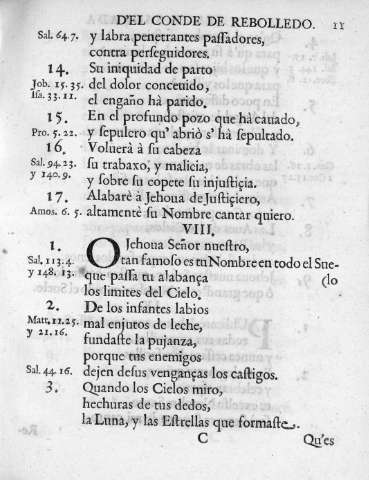 D'EL CONDE DE REBOLLEDO. 11
Sal. 64. 7. y labra penetrantes passadores,
contra perseguidores.
14. Su iniquidad de parto
Job. 15. 35. del dolor conceuido,
Isa. 33. 11. el engaño hà parido.
15. En el profundo pozo que hà cauado,
Pro. 5. 22. y sepulcro qu' abriò s' hà sepultado.
16. Voluerà à su cabeza
Sal. 94. 23. su trabaxo, y malicia,
y 140. 9. y sobre su copete su injustiçia.
17. Alabarè à Jehoua de Justiçiero,
Amos. 6. 5. altamentè su Nombre cantar quiero.
VIII.
1. O Jehoua Señor nuestro,
Sal. 113. 4. tan famoso es tu Nombre en todo el Sue-
y 148. 13. que passa tu alabança (lo
los limites del Cielo.
2. De los infantes labios
Matt. 11. 25. mal enjutos de leche,
y 21. 16. fundaste la pujanza,
porque tus enemigos
Sal. 44. 16. dejen desus venganças los castigos.
3. Quando los Cielos miro,
hechuras de tus dedos,
la Luna, y las Estrellas que formaste.
C Qu'es